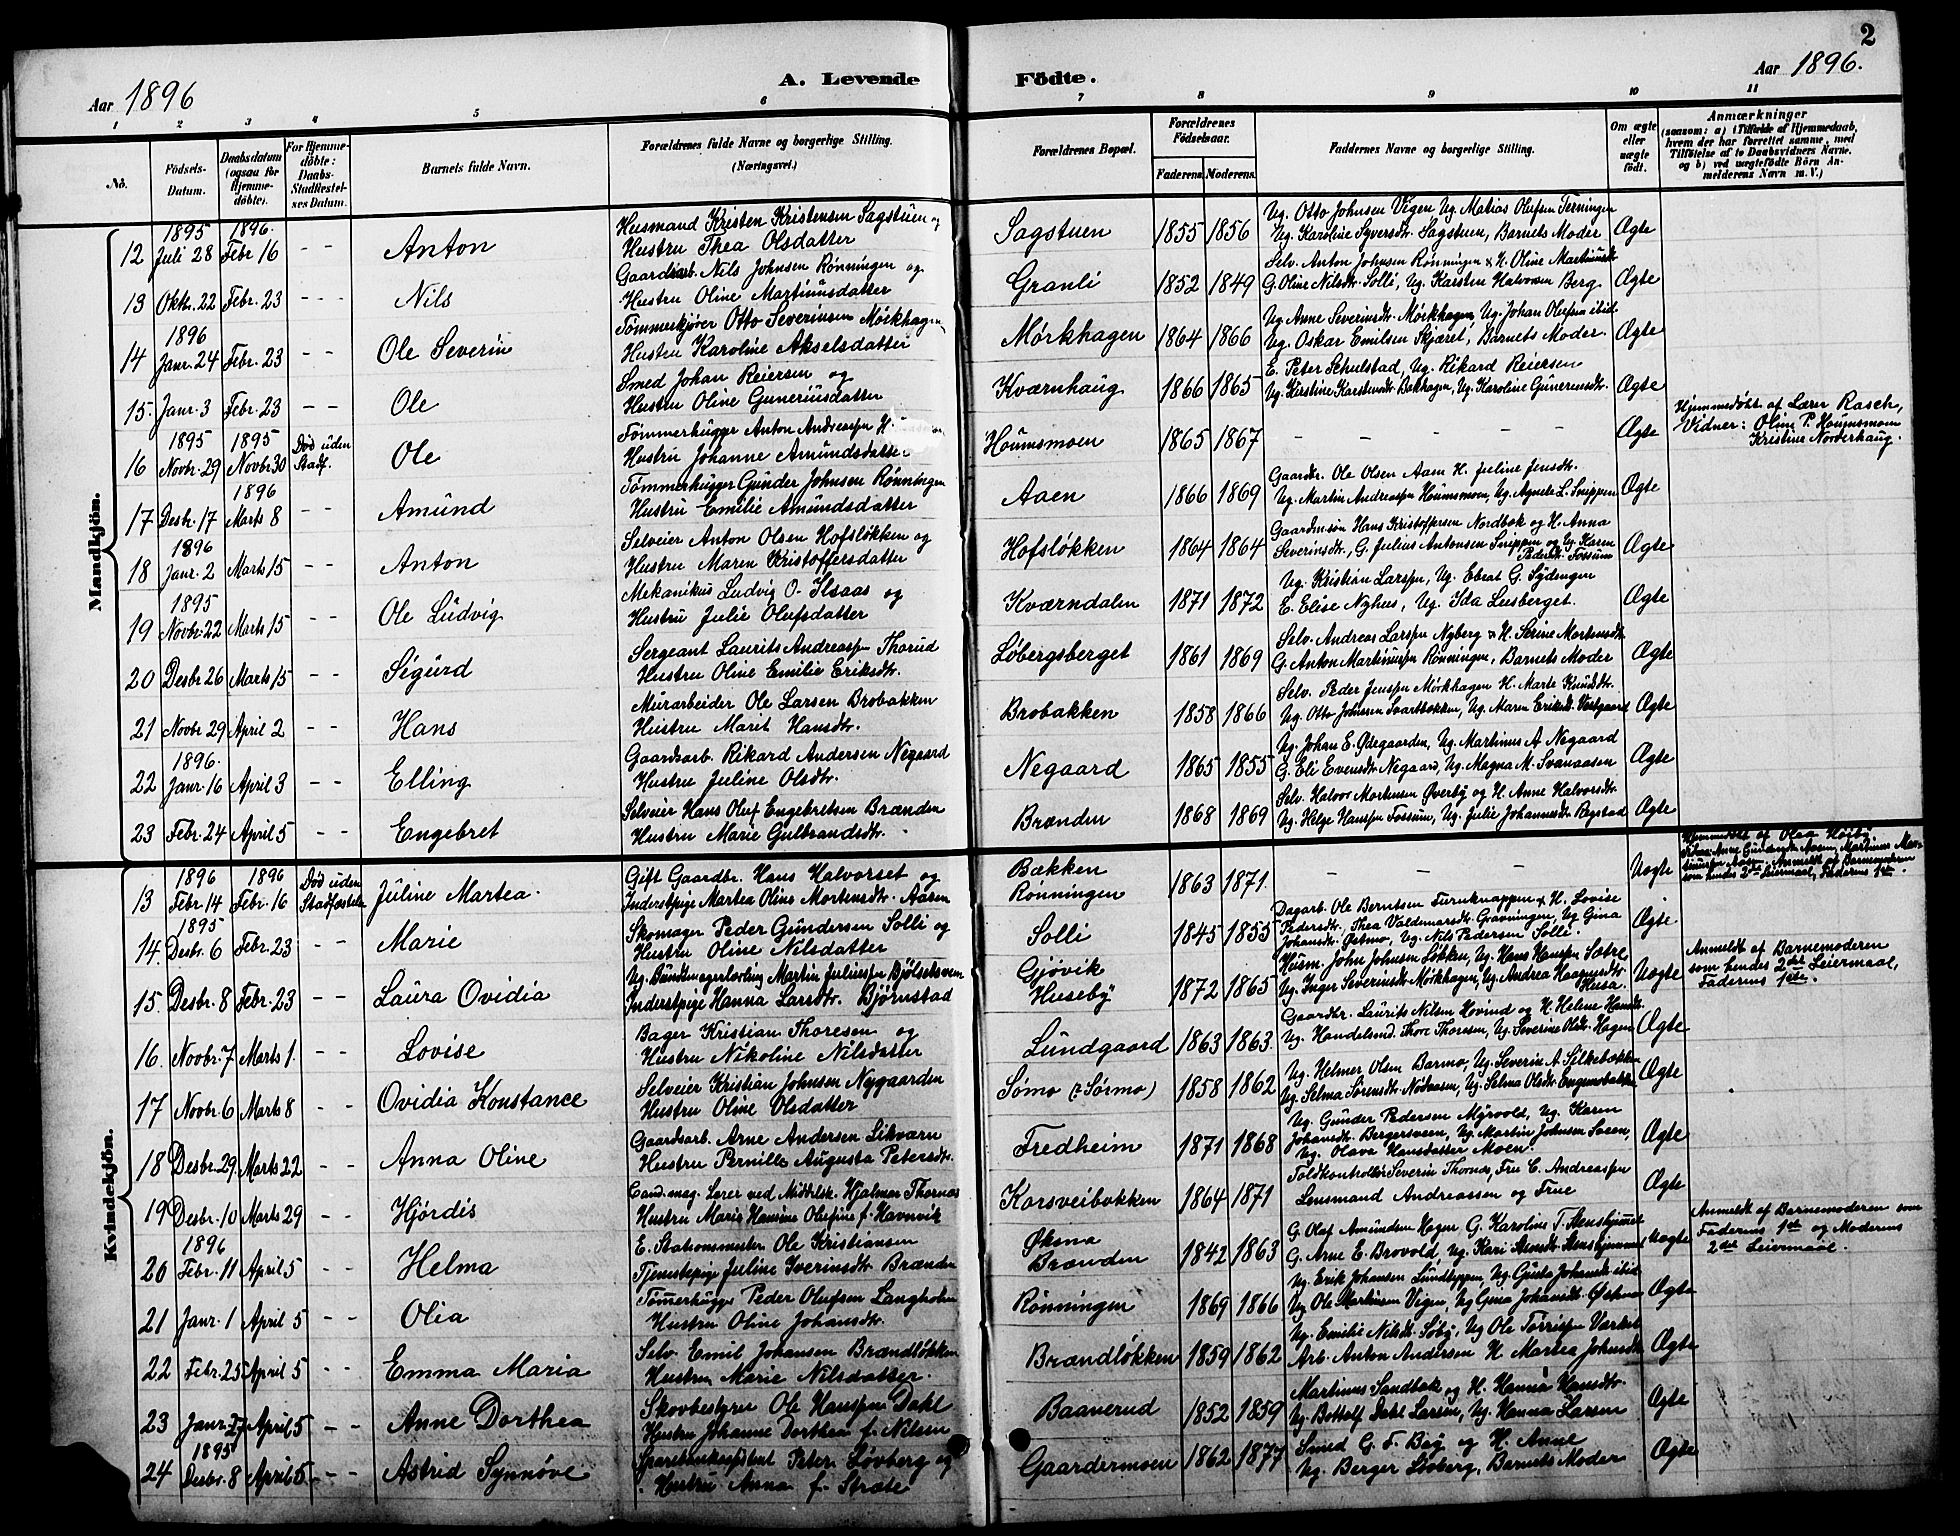 2
Aar 1896
A. Levende
Fødte.
Aar 1896.
1 2 3 4 5 6 7 8 9 10 11
No.
Fødsels-Datum.
Daabsdatum (ogsaa for Hjemmedøbte).
For Hjemmedøbte: Daabs-Stadfæstelses Datum.
Barnets fulde Navn.
Forældrenes fulde Navne og borgerlige Stilling. (Næringsvei.)
Forældrenes Bopæl.
Forældrenes Fødselsaar.
Faderens.
Moderens.
Faddernes Navne og borgerlige Stilling.
Om ægte eller uægte født.
Anmærkninger
(saasom: a) i Tilfælde af Hjemmedaab, hvem der har forrettet samme, med Tilføielse af to Daabsvidners Navne, og b) ved uægtefødte Børn Anmelderens Navn m. V.)
Mandkjøn.
12 1895 Juli 28 1896. Febr 16 - - Anton Husmand Kristen Kristensen Sagstuen og Hustru Thea Olsdatter Sagstuen 1855 1856 Ug. Otto Johnsen Vigen Ug. Matias Olufsen Terningen Ug. Karoline Syversdr. Sagstuen, Barnets Moder Ægte
13 Oktr. 22 Febr. 23 - - - Nils Gaardarb. Nils Johnsen Rønningen og Hustru Oline Martinusdatter Granli 1852 1849 Selv. Anton Johnsen Rønningen & H. Oline Martinusdr. G. Oline Nilsdr. Solli, Ug. Karsten Halvorsen Berg Ægte
14 1896 Janr. 24 Febr. 23 - - Ole Severin Tømmerkjører Otto Severinsen Mørkhagen Hustru Karoline Akselsdatter Mørkhagen 1864 1866 Ug. Anne Severinsdr. Mørkhagen, Ug. Johan Olufsen ibid. Ug. Oskar Emilsen Skjæret, Barnets Moder Ægte
15. Janr. 3 Febr. 23 - - Ole Smed Johan Reiersen og Hustru Oline Guneriusdatter Kværnhaug 1866 1865 E. Peter Schulstad, Ug. Rikard Reiersen Ug. Kirstine Karstensdr. Bakhagen, Ug. Karoline Guneriusdr. Ægte
16 1895 Novbr. 29 1895 Novbr 30 Död uden Stadf. Ole Tømmerhugger Anton Andreassen Hustru Johanne Amundsdatter Houmsmoen 1865 1867 - - - - - Ægte Hjemmedøbt af Lærer Rasch, Vidner: Oline P. Houmsmoen Kristine Norderhaug.
17 Desbr. 17 1896 Marts 8 - - Amund Tømmerhugger Gunder Johnsen Rønningen Hustru Emilie Amundsdatter Aaen 1866 1869 Gaardbr. Ole Olsen Aaen H. Juline Jensdr. Ug. Martin Andreassen Houmsmoen, Ug. Agnete L. Snippen Ægte
18 1896 Janr. 2 Marts 15 - - Anton Selveier Anton Olsen Hofsløkken og Hustru Maren Kristoffersdatter Hofsløkken 1864 1864 Gaardmsøn Hans Kristoffersen Nordbak og H. Anna Severinsdr., G. Julius Antonsen Snippen og Ug. Karen Pedersdr. Fossum Ægte
19 1895 Novbr. 22 Marts 15 - - Ole Ludvig Mekanikus Ludvig O. Ilsaas og Hustru Julie Olufsdatter Kværndalen 1871 1872 Ug. Kristian Larssen, Ug. Ebrat G. Sydengen E. Elise Nyhus, Ug. Ida Lusberget. Ægte
20 Desbr 26 Marts 15 - - Sigurd Sergeant Laurits Andreassen Thorud Hustru Oline Emilie Eriksdr. Løbergsberget 1861 1869 Selv. Andreas Larssen Nyberg & H. Serine Mortensdr. G. Anton Martinussen Rønningen, Barnets Moder Ægte
21 Novbr 29 April 2 - - Hans Murarbeider Ole Larsen Brobakken Hustru Marit Hansdr. Brobakken 1858 1866 Selv. Peder Jenssen Mørkhagen H. Marte Knudsdr. Ug. Otto Johnsen Svartbækken, Ug. Maren Eriksd. Vestgaard Ægte
22 1896. Janr. 16 April 3 - - Elling Gaardsarb. Rikard Andersen Negaard Hustru Juline Olsdtr. Negaard 1865 1855 Ug. Johan E. Ødegaarden, Ug. Martinus A. Negaard G. Eli Evensdtr. Negaard, Ug. Magna M. Svenaasen Ægte
23 Febr. 24 April 5 - - Engebret Selveier Hans Oluf Engebretsen Brænden Hustru Marie Gulbrandsdr. Brænden 1868 1869 Selv. Halvor Mortensen Øverby og H. Anne Halvorsdr. Ug. Helge Hanssen Fossum, Ug. Julie Johannesdr. Rogstad Ægte
Kvindekjøn.
13 1896 Febr 14 1896 Febr 16 Död uden Stadfæstelse Juline Martea. Gift Gaardbr. Hans Halvorset og Inderstpige Martea Oline Mortensdr. Aasen Bækken Rønningen 1863 1871. - - Uægte Hjemmedøbt af Olea Høiby. Anmeldt af Barnemoderen som hendes 2det Leiermaal, Faderens 1ste.
14. 1895 Desbr. 6 Febr. 23 - - Marie Skomager Peder Gundersen Solli og Hustru Oline Nilsdatter Solli 1845 1855 Dagarb. Ole Berntsen Furuknappen & H. Lovise Pedersdr. Thea Valdemarsdr. Gravningen, Ug. Gina Johansdr. Østmo, Ug. Nils Pedersen Solli. Ægte
15. Desbr. 8 Febr. 23 - - Laura Ovidia Ug. Bundmagerlærling Martin Juliussen Bjølsetsveen Inderstpige Hanna Larsdr. Bjørnstad Gjøvik Huseby 1872 1865 Husm. John Johnsen Løkken, Ug. Hans Hanssen Sætre Ug. Inger Severinsdr. Mørkhagen, Ug. Andrea Haagensdr. Husa. Uægte Anmeldt af Barnemoderen som hendes 2det Leiermaal, Faderens 1ste.
16 Novbr. 7 Marts 1. - - Lovise Bager Kristian Thoresen og Hustru Nikoline Nilsdatter Lundgaard 1863 1863. Gaardbr. Laurits Nilsen Hovind og H. Helene Hansdr. Ug. Handelsmd. Thore Thoresen, Ug. Severine Olsdr. Hagen Ægte
17 Novbr 6 Marts 8 - - Ovidia Konstance Selveier Kristian Johnsen Nygaarden Hustru Oline Olsdatter Sømo (: Sørmo) 1858 1862 Ug. Helmer Olsen Barmo, Ug. Severin A. Silkebækken Ug. Selma Sørensdr. Nødaasen, Ug. Selma Olsdr. Engensbakken Ægte
18 Desbr. 29 Marts 22 - - Anna Oline Gaardsarb. Arne Andersen Likværn Hustru Pernille Augusta Petersdr. Fredheim 1871 1868 Ug. Gunder Pedersen Myrvold, Ug. Karen Johansdr. Bergersveen, Ug. Martin Johnsen Sveen, Ug. Olava Hansdatter Moen. Ægte
19 Desbr. 10 Marts 29 - - Hjørdis Cand. mag. Lærer ved Middelsk. Hjalmar Thornæs Hustru Marie Hansine Olufine f. Havnvik Korsveibakken 1864 1871 Toldkontrollør Severin Thornæs, Fru C. Andreassen Lensmand Andreassen og Frue Ægte
20 1896 Febr. 11 April 5 - - Helma E. Stationsmester Ole Kristiansen Tjenestepige Juline Iverinsdr. Brænden Øksna Brænden 1842 1863 G. Olaf Amundsen Hagen G. Karoline T. Stenshjemmet G. Arne E. Brovold, Ug. Kari Stensdr. Stenshjemmet Uægte Anmeldt af Barnemoderen som Faderens 1ste og Moderens 2det Leiermaal.
21 Janr. 1 April 5 - - Olea Tømmerhugger Peder Olufsen Langholen Hustru Oline Johansdr. Rønningen 1869 1866 Ug. Erik Johansen Lundteppen, Ug. Gusta Johansdr. ibid Ug. Ole Martinsen Vigen, Ug Gina Johansdr. Østmo Ægte
22 Febr. 25 April 5 - - Emma Maria Selv. Emil Johansen Brændløkken Hustru Marie Nilsdatter. Brændløkken 1859 1862 Ug. Emilie Nilsdr. Søby, Ug Ole Torrissen Varket Arb. Anton Andersen H. Martea Johnsdr. Ægte
23 Janr. April 5 - - Anne Dorthea Skovbestyrer Ole Hanssen Dahl Hustru Johanne Dorthea f. Nilsen Baanerud 1852 1859 Martinus Sandbak og H. Hanna Hansdr. Ug. Bottolf Dahl Larsen, Ug. Hanna Larsen Ægte
24 1895 Desbr. 8 April 5 - - Astrid Synnøve Sparebankassistent Peter Løvberg og Hustru Anna f. Stræte Gaardermoen 1862 1877 Smed G. F. Bøy og H. Anne Ug. Berger Løvberg, Barnets Moder Ægte